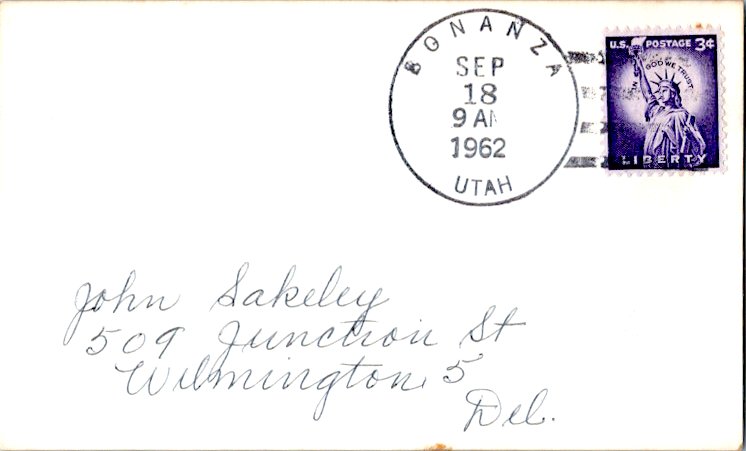 BONANZA
SEP
18
9 AM
1962
UTAH
U.S. POSTAGE 3¢
IN GOD WE TRUST
LIBERTY
John Sakeley
509 Junction St
Wilmington 5
Del.